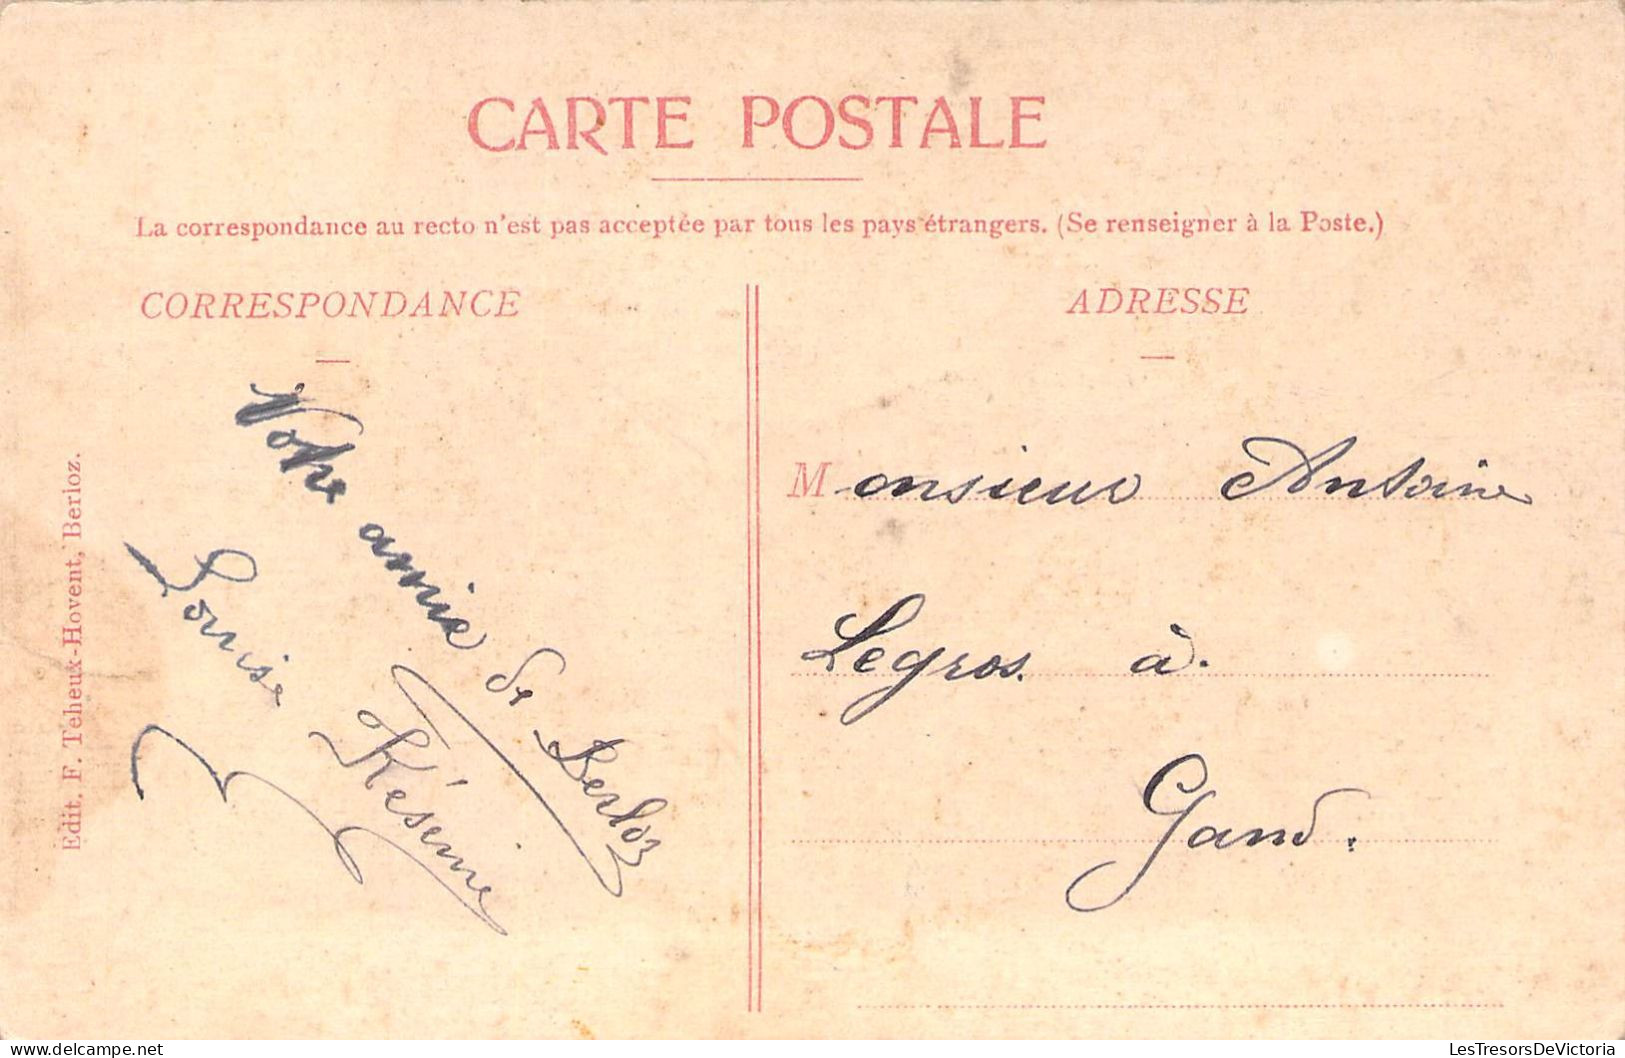 CARTE POSTALE
La correspondance au recto n'est pas acceptée par tous les pays étrangers. (Se renseigner à la Poste.)
CORRESPONDANCE
Votre amie de Berloz
Louise Késenne
Edit. F. Teheux-Hovent, Berloz.
ADRESSE
Monsieur Antoine
Legros. à.
Gand.
LesTresorsDeVictoria